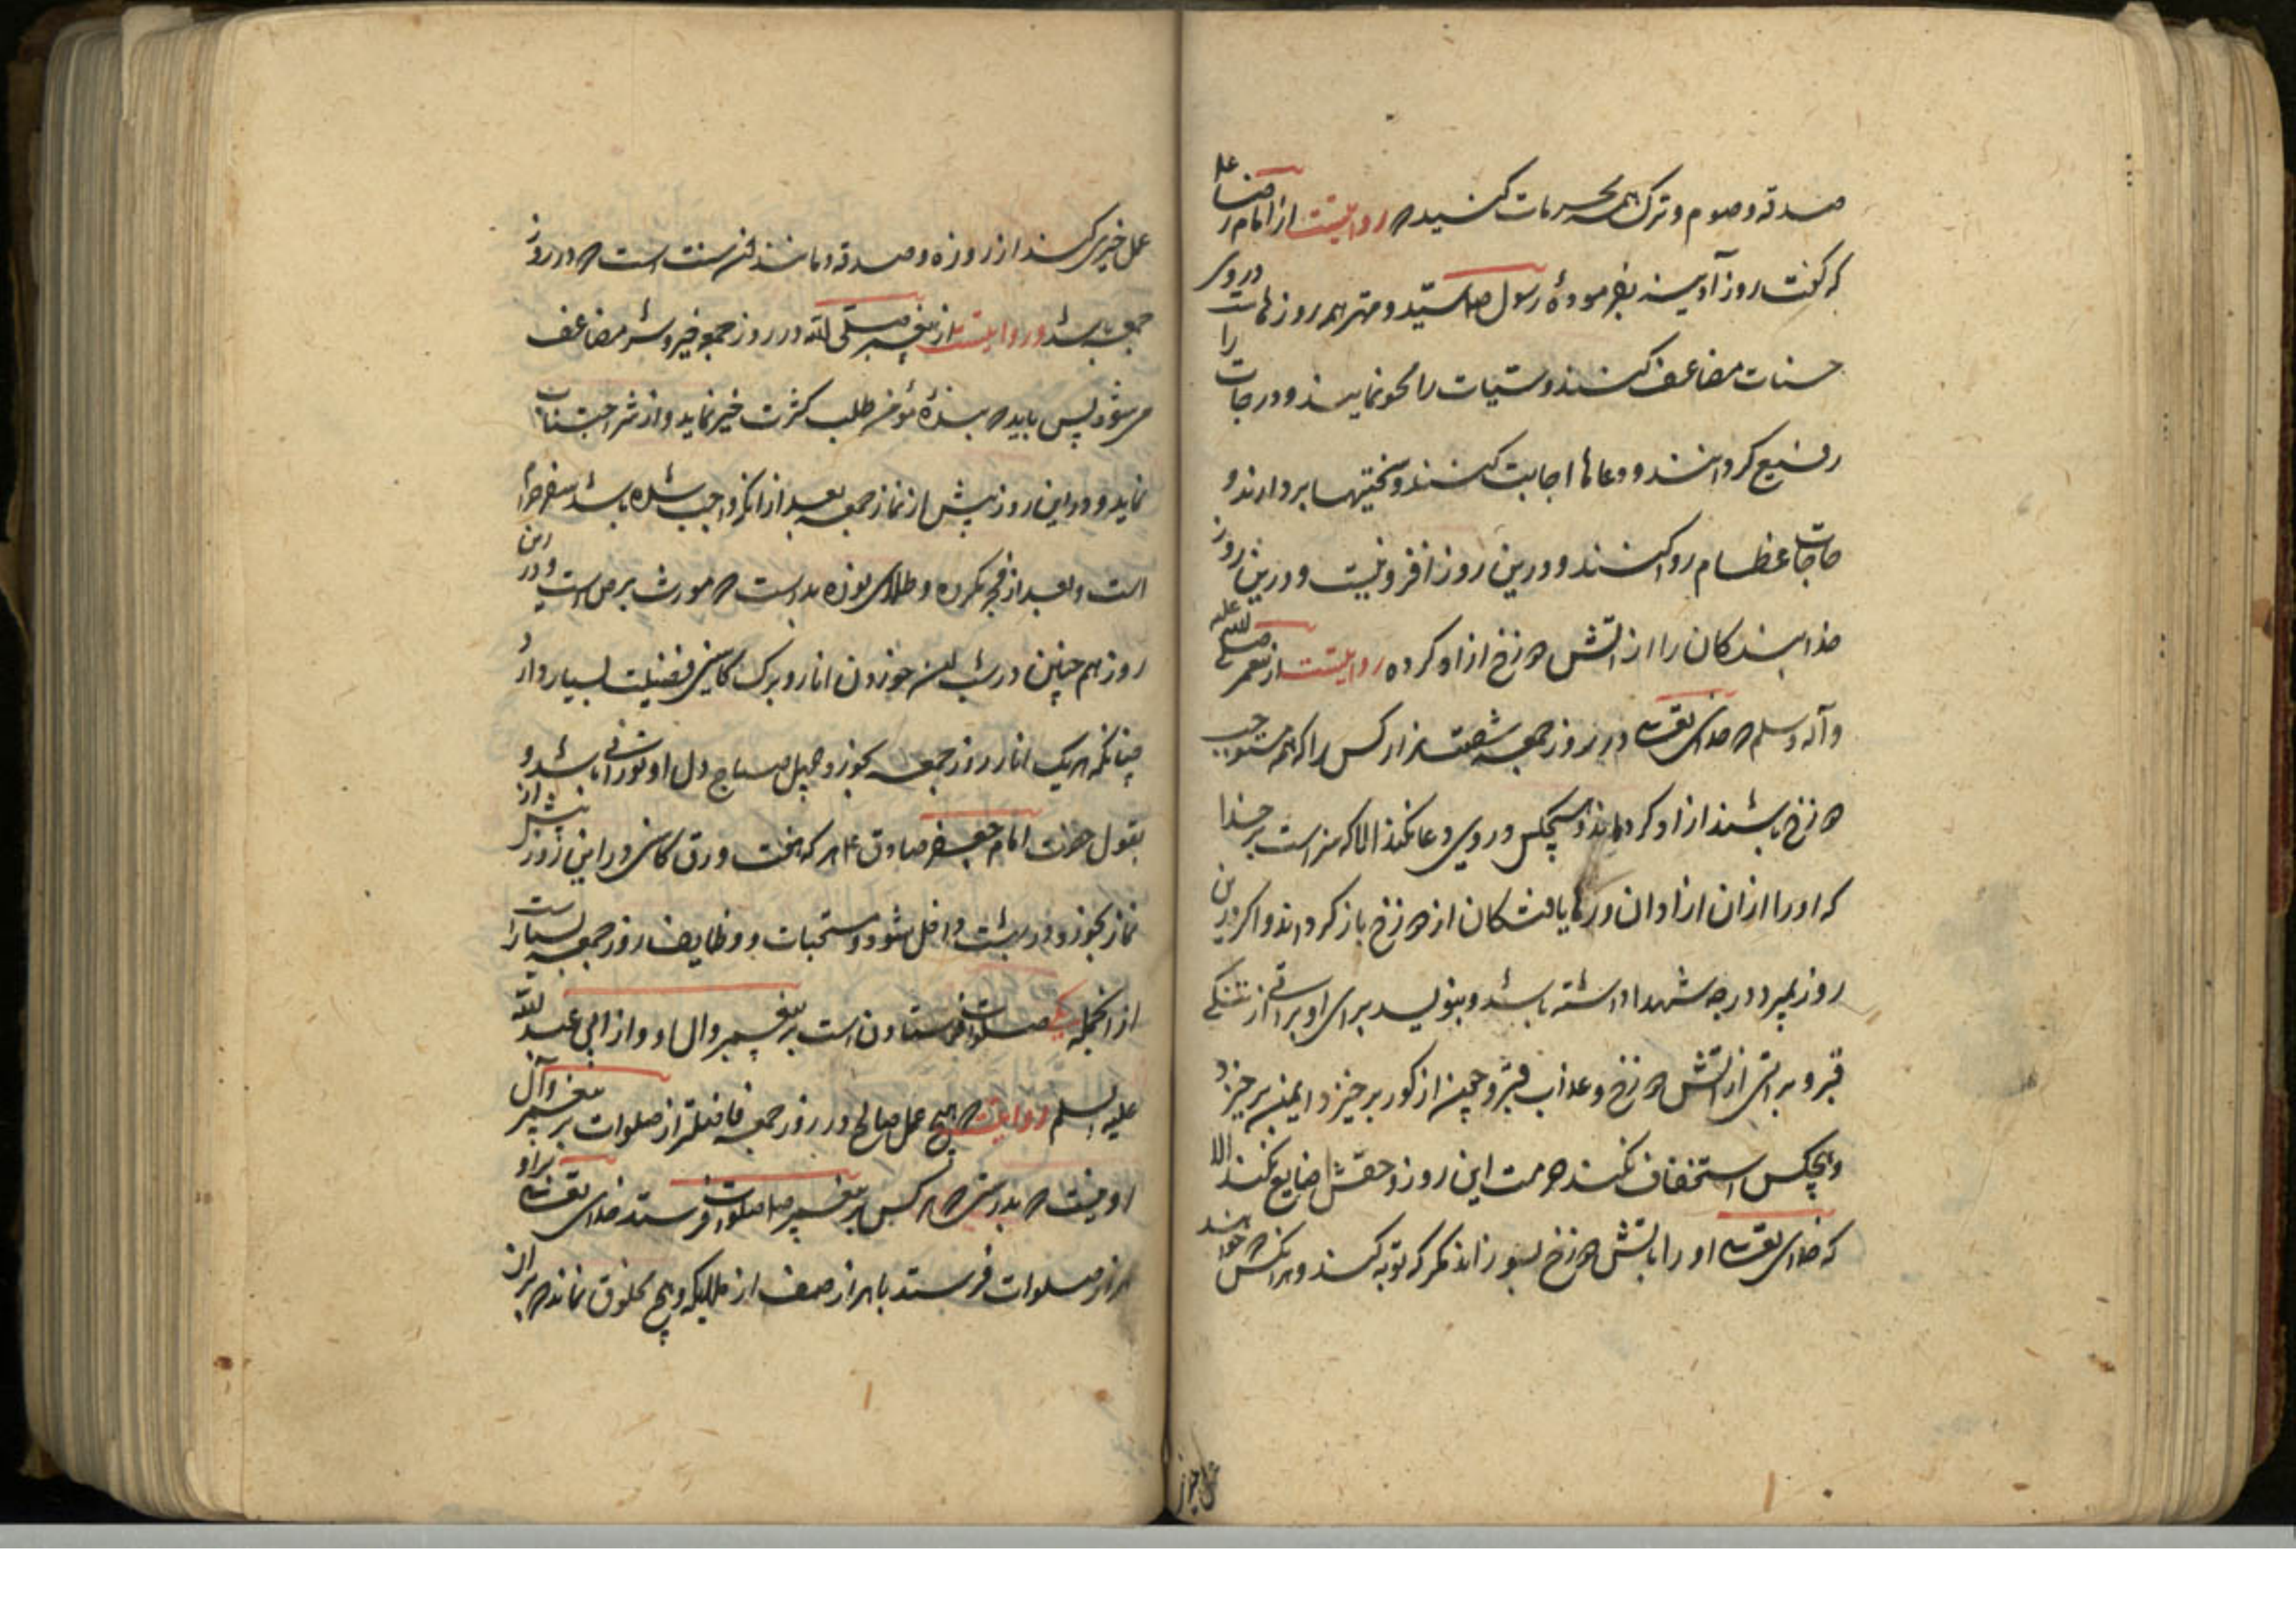 صدقه و صوم و ترک همه محرمات کنید روایتست از امام رضا علیه
که گفت روز آدینه بفرمودهٔ رسول ص سید و مهتر همه روزهاست در وی
حسنات مضاعف کنند و سیّات را محو نمایند و درجات را
رفیع کردانند و دعاها اجابت کنند و سختیها بردارند و
حاجات عظام روا کنند و درین روز افزونیست و درین روز
خدا بندکان را از اتش دوزخ ازاد کرده روایتست از پیغمبر صلی الله علیه
و آله و سلم که خدای تعالی در روز جمعه ششصد هزار کس را که همه مستوجب
دوزخ باشند ازاد کرداند و هیچکس در وی دعا نکند الا که سزاست بر خدا
که او را ازان ازادان و رها یافتکان از دوزخ باز کرداند و اکر درین
روز بمیرد درجه شهدا داشته باشد و بنویسد برای او براتی از تنکی
قبر و براتی از اتش دوزخ و عذاب قبر و چون از کور برخیزد ایمن برخیزد
و هیچکس استخفاف نکند حرمت این روز و حقش ضایع نکند الا
که خدای تعالی او را باتش دوزخ بسوزاند مکر که توبه کند و هر انکس که خواهد
عمل خیری
عمل خیری کند از روزه و صدقه و مانند این سنت است که در روز
جمعه باشد و روایتست از پیغمبر صلی الله در روز جمعه خیر و شر مضاعف
می شود پس باید که بندهٔ مؤمن طلب کثرت خیر نماید و از شر اجتناب
نماید و در این روز پیش از نماز جمعه بعد از انکه واجب شده باشد سفر حرام
است و بعد از فجر مکروه و طلای نوره بد است که مورث برص است و درین
روز هم چنین در شب این خوردن انار و برک کاسنی فضیلت بسیار دارد
چنانکه هر یک انار روز جمعه بخورد چهل صباح دل او نورانی باشد و
بقول حضرت امام جعفر صادق ع هر که هفت ورق کاسنی در این روز پیش از
نماز بخورد در بهشت داخل شود و مستحبات و وظایف روز جمعه بسیار است
از انجمله یکی صلوات فرستادن است بر پیغمبر و ال او و از ابی عبد الله
علیه السلم روایتست که هیچ عمل صالح در روز جمعه فاضلتر از صلوات بر پیغمبر و آل
او نیست که بدرستی که هر کس بر پیغمبر ص صلوات فرستد خدای تعالی بر او
هزار صلوات فرستد با هزار صف از ملایکه و هیچ مخلوق نماند که بر ان